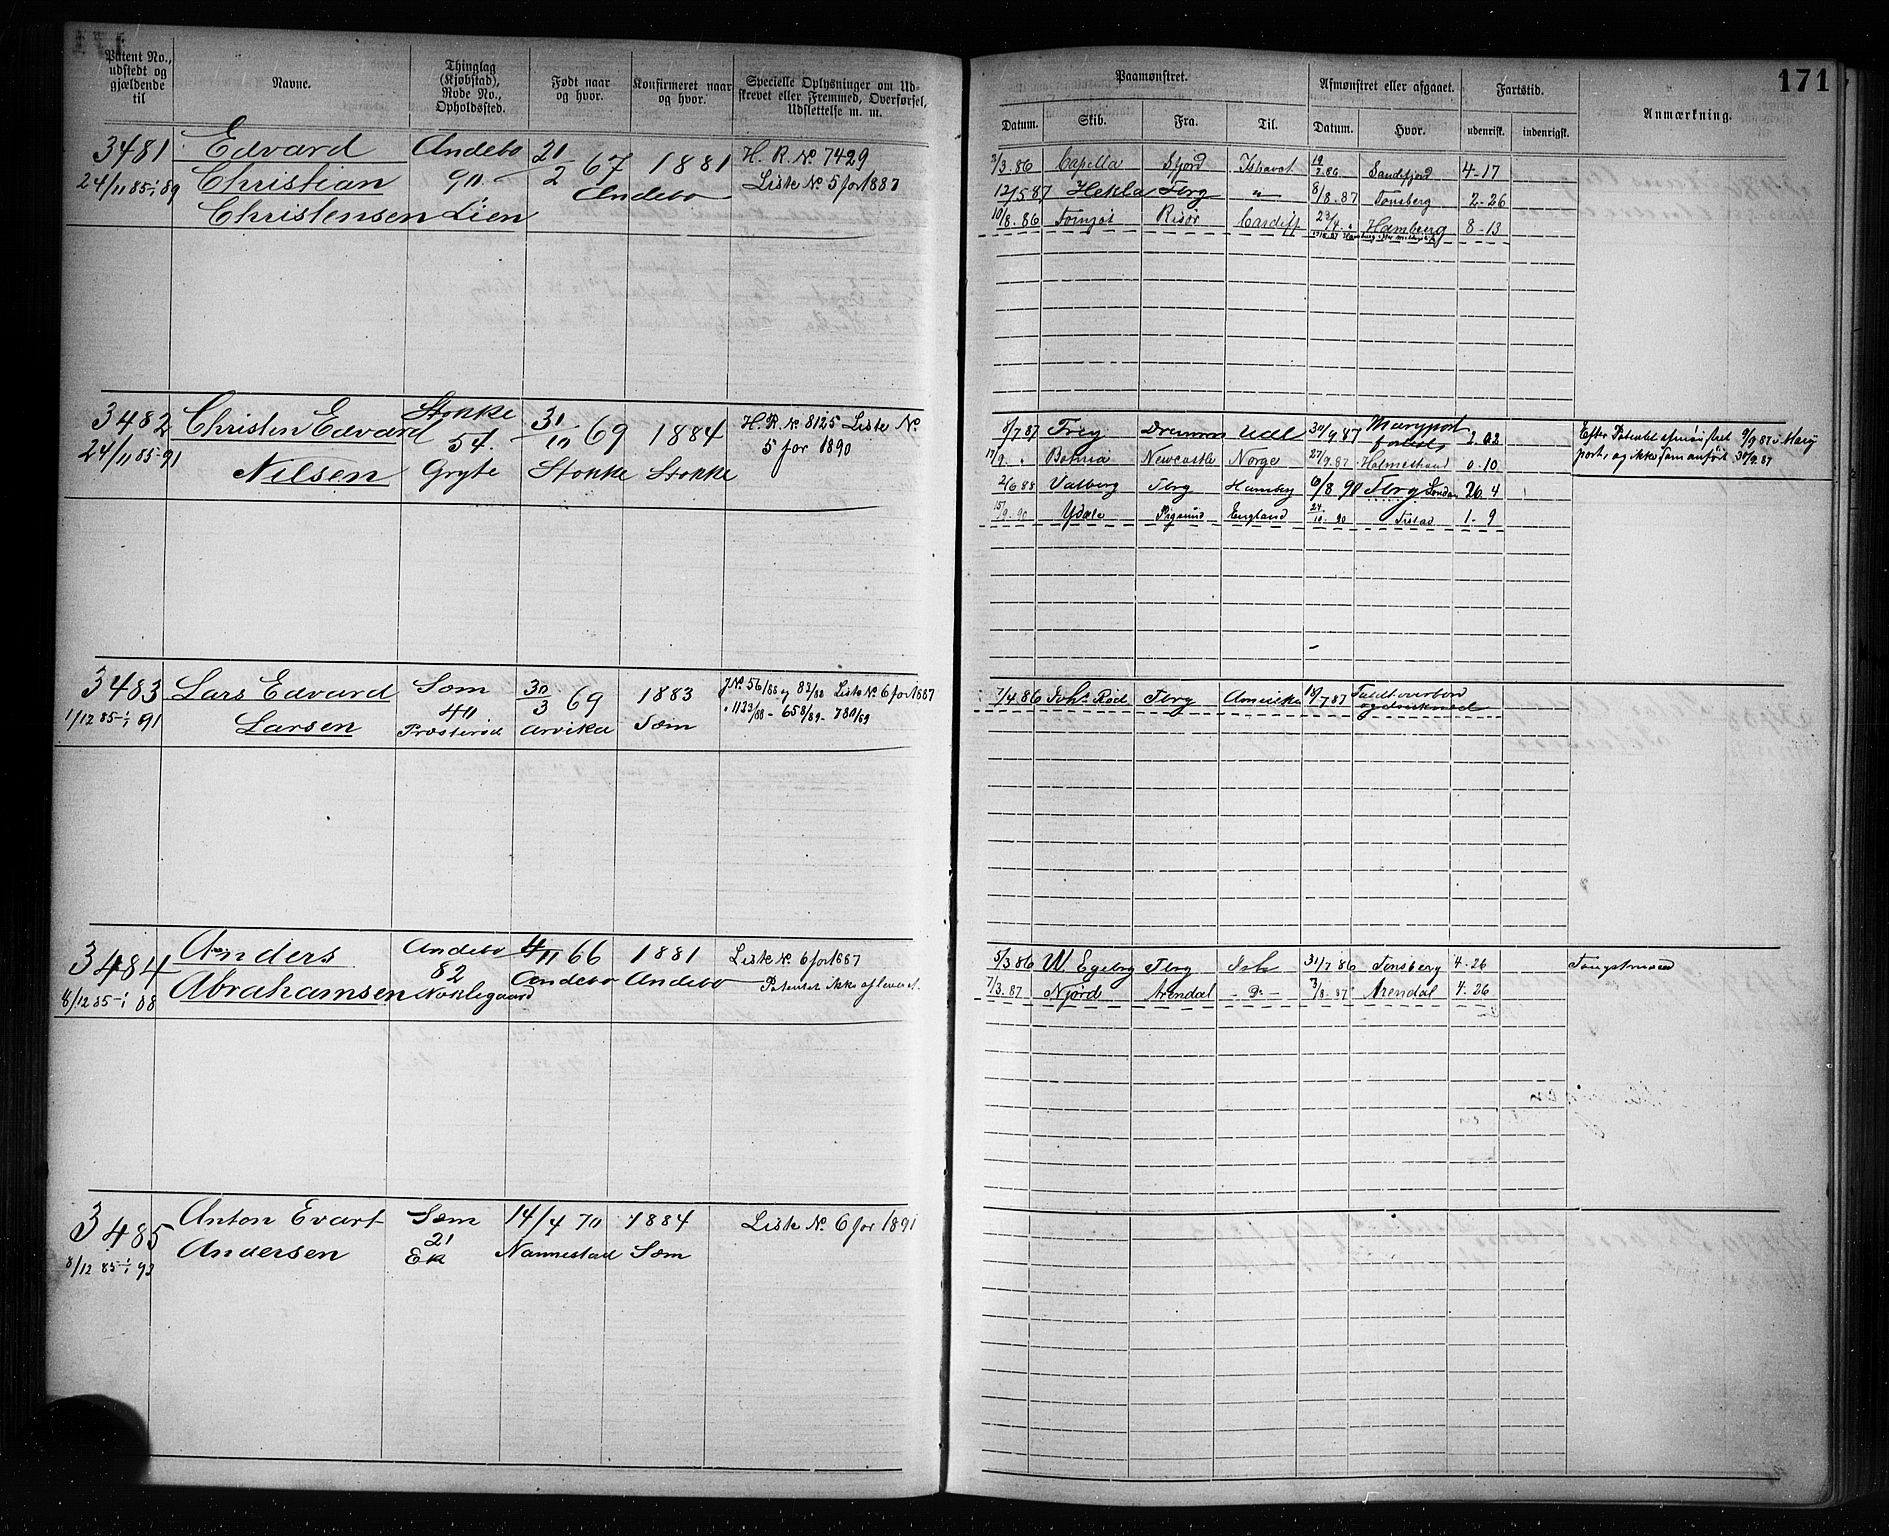 171
Patent No., udstedt og gjældende til
Navne.
Thinglag (Kjøbstad), Rode No., Opholdssted.
Født naar og hvor.
Konfirmeret naar og hvor.
Specielle Oplysninger om Udskrevet eller Fremmed, Overførsel, Udslettelse m. m.
Paamønstret.
Afmønstret eller afgaaet.
Fartstid.
Anmærkning.
Datum. Skib. Fra. Til. Datum. Hvor. udenrigs. indenrigs.
3481 Edvard Andebo 21/2 67 1881 H. R. No 7429
24/11 85-1/1 89 Christian 90. Andebo Liste No. 5 for 1887
Christensen Lien
2/3.86 Capella Sfjord Ishavet Sandefjord 4-17
12/5 87 Hekla Tbrg " 8/8.87 Tønsberg 2-26
10/8.86 Risør Cardiff Hamburg 8-13
3482 Christen Edvard Stokke 31/10 69 1884 H. R. No 8125 Liste No.
24/11 85-1/1 91 Nilsen 54. Gryte Stokke Stokke 5 for 1890
8/7 87 Frey Drammen Udl 30/9 87 Maryport
17/9 " Newcastle Norge 27/9.87 Holmestrand 0-10
2/6 88 Valborg Tbrg Hamborg 6/8 90 Tbrg London 26 4
15/9.90 Ydale England 24/10.90 1-9
3483 Lars Edvard Sem 30/3 69 1883 J No. 56/88 og 82/88 Liste No 6 for 1887
1/12 85-1/1 91 Larsen 40 Arvika Sem 1133/88 - 658/89 - 780/89
Præsterød
7/4.86 Joh. Rød Tbrg Amerika 18/7 87 Faldt overbord
og druknede
3484 Anders Andebo 4/11 66 1881 Liste No. 6 for 1887
8/12 85-1/1 88 Abrahamsen 82 Andebo Andebo Patentet ikke afleveret.
Nøklegaard
5/3 86 W Egeberg Tbrg Ish 31/7 86 Tønsberg 4-26
7/3.87 Njørd Arendal - Do - 3/8.87 Arendal 4.26
Fangstmand
3485 Anton Evart Sem 14/4 70 1884 Liste No. 6 for 1891
8/12 85-1/1 92 Andersen 21 Nannestad Sem
Ek